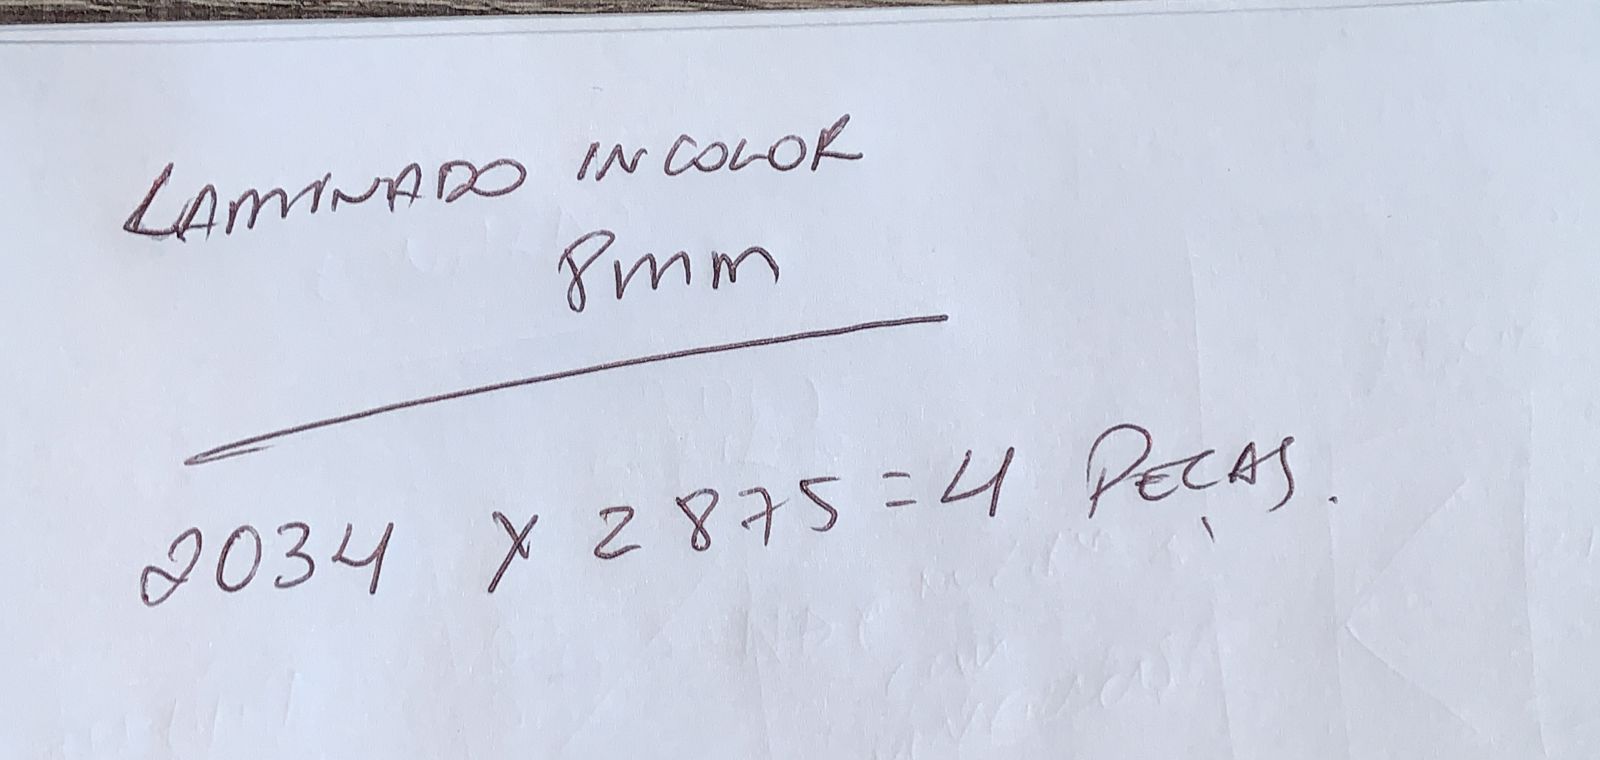 LAMINADO INCOLOR
8mm
2034 X 2875 = 4 PEÇAS.